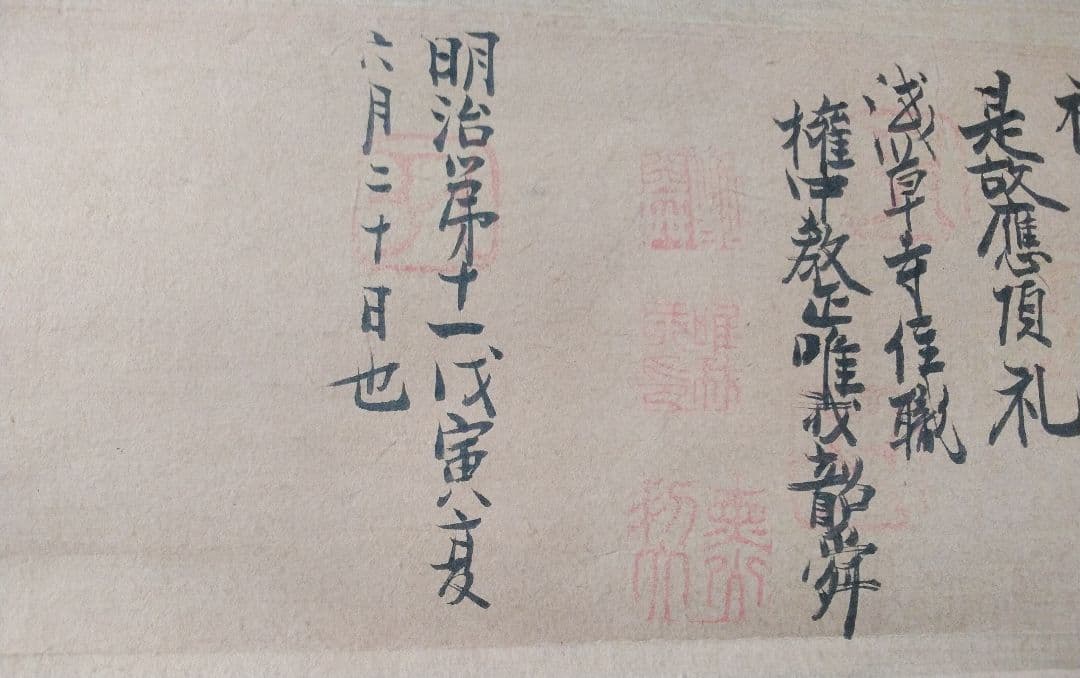 是故應頂礼
浅草寺住職
権中教正唯我韶舜
明治第十一戊寅夏
六月二十日也